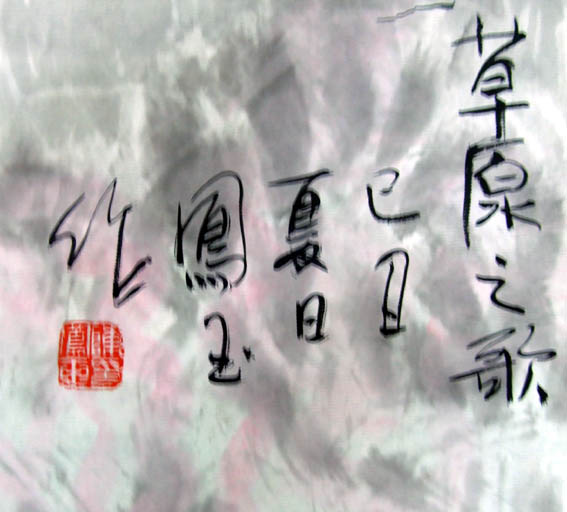 草原之歌
己丑
夏日
鳳玉
作